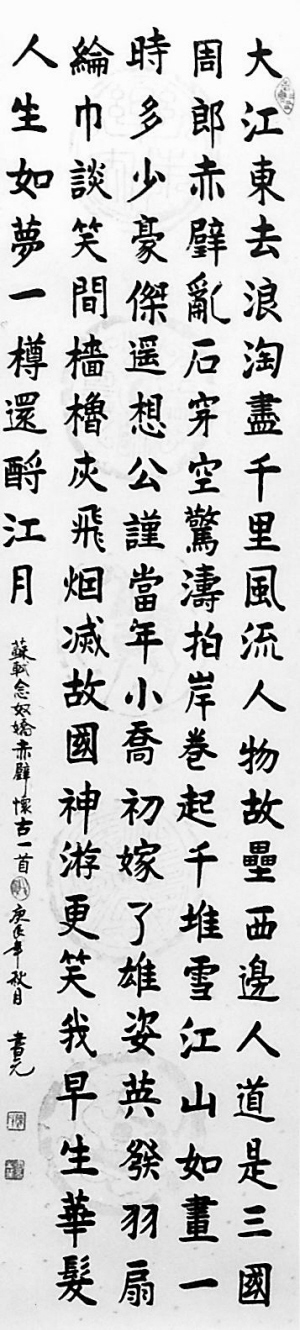 大江東去浪淘盡千里風流人物故壘西邊人道是三國
周郎赤壁亂石穿空驚濤拍岸卷起千堆雪江山如畫一
時多少豪傑遥想公謹當年小喬初嫁了雄姿英發羽扇
綸巾談笑間檣櫓灰飛烟滅故國神游更笑我早生華髮
人生如夢一樽還酹江月
蘇軾念奴嬌赤壁懷古一首 庚辰年秋月 書元